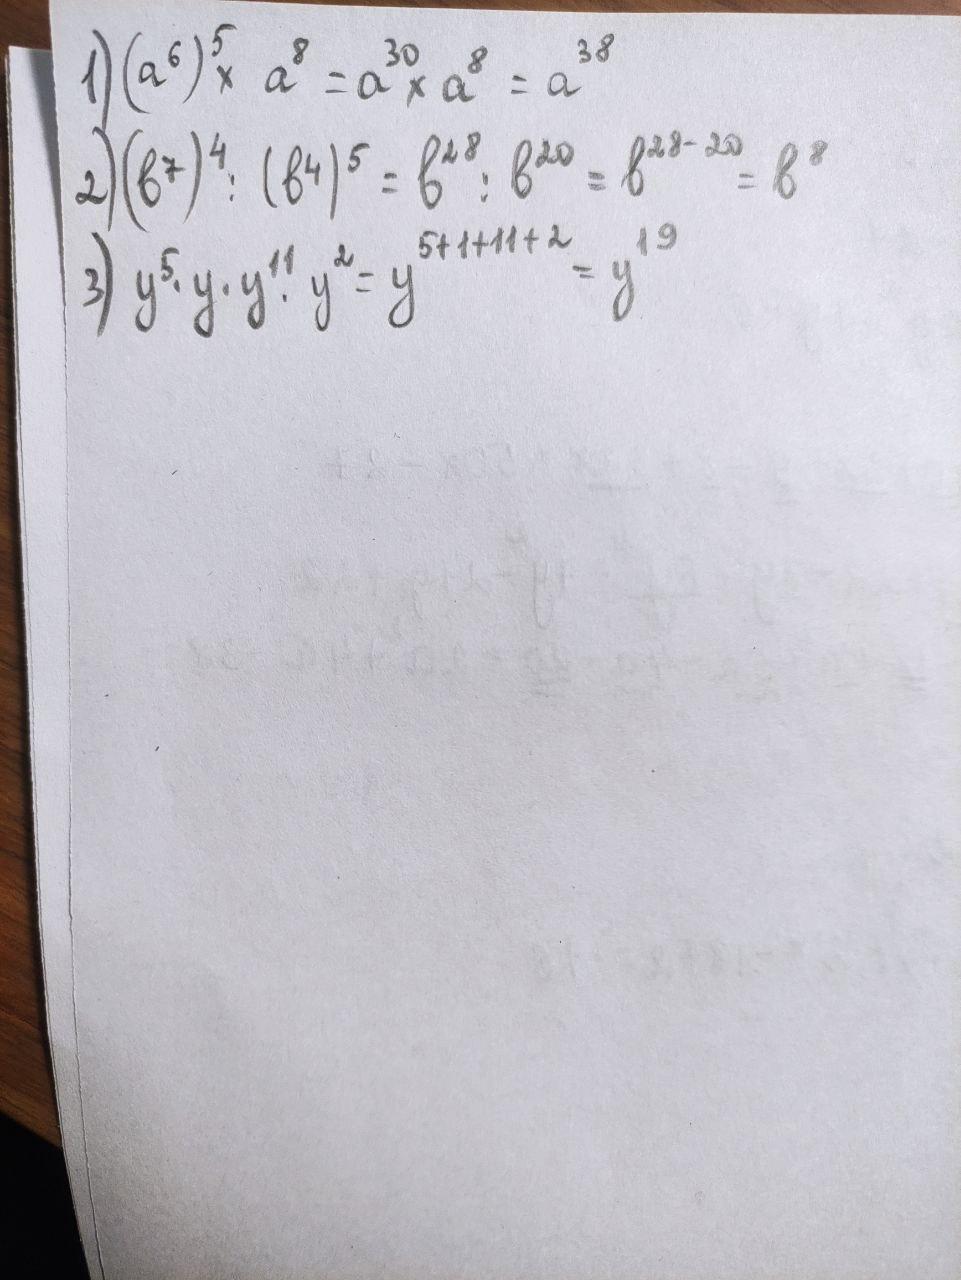 1) (a⁶)⁵ × a⁸ = a³⁰ × a⁸ = a³⁸
2) (в⁷)⁴ : (в⁴)⁵ = в²⁸ : в²⁰ = в²⁸⁻²⁰ = в⁸
3) y⁵ · y · y¹¹ · y² = y⁵⁺¹⁺¹¹⁺² = y¹⁹